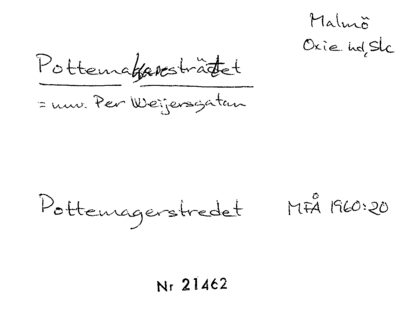 Malmö
Oxie hd, Skc
Pottemakaresträtet
= nuv. Per Weijersgatan
Pottemagerstredet MFÅ 1960:20
Nr 21462